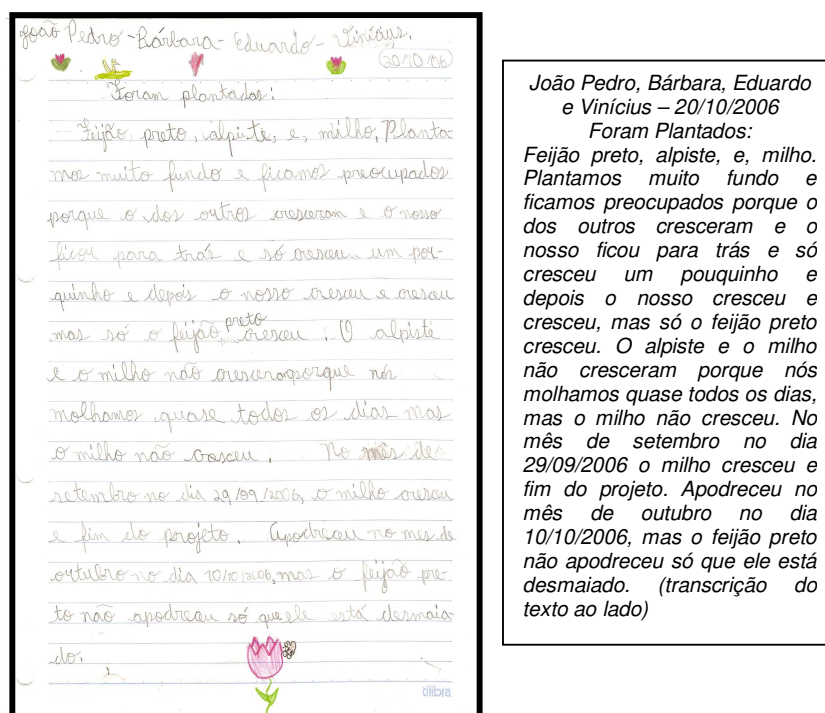 João Pedro - Bárbara - Eduardo - Vinícius.
20/10/06
Foram plantados:
Feijão, preto, alpiste, e, milho, Planta
mos muito fundo e ficamos preocupados
porque o dos outros cresceram e o nosso
ficou para trás e só cresceu um po-
quinho e depois o nosso cresceu e cresceu
mas só o feijão preto cresceu. O alpiste
e o milho não cresceram porque nós
molhamos quase todos os dias mas
o milho não cresceu. No mês de
setembro no dia 29/09/2006, o milho cresceu
e fim do projeto. Apodreceu no mes de
outubro no dia 10/10/2006, mas o feijão pre-
to não apodreceu só que ele está desmaia
do.
tilibra
João Pedro, Bárbara, Eduardo
e Vinícius – 20/10/2006
Foram Plantados:
Feijão preto, alpiste, e, milho.
Plantamos muito fundo e
ficamos preocupados porque o
dos outros cresceram e o
nosso ficou para trás e só
cresceu um pouquinho e
depois o nosso cresceu e
cresceu, mas só o feijão preto
cresceu. O alpiste e o milho
não cresceram porque nós
molhamos quase todos os dias,
mas o milho não cresceu. No
mês de setembro no dia
29/09/2006 o milho cresceu e
fim do projeto. Apodreceu no
mês de outubro no dia
10/10/2006, mas o feijão preto
não apodreceu só que ele está
desmaiado. (transcrição do
texto ao lado)